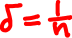 δ = 1/n